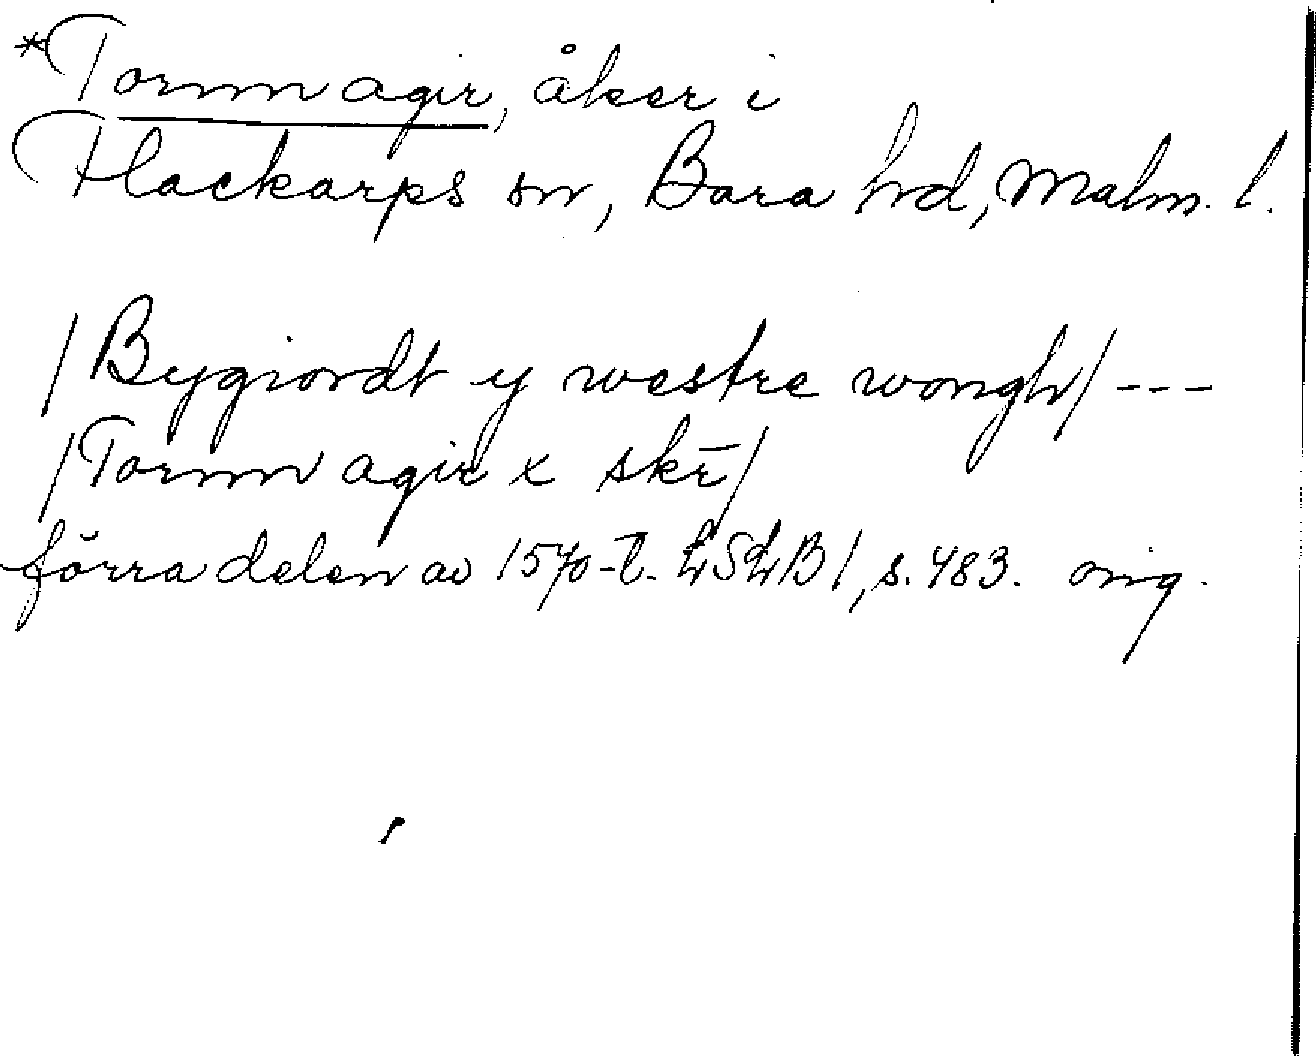 *Tornn agir, åker i
Flackarps sn, Bara hd, Malm. l.
/Bygiordt y westre wongh/ ---
/Tornn agir x skr̄/
förra delen av 1570-t. LSLB 1, s. 483. orig.